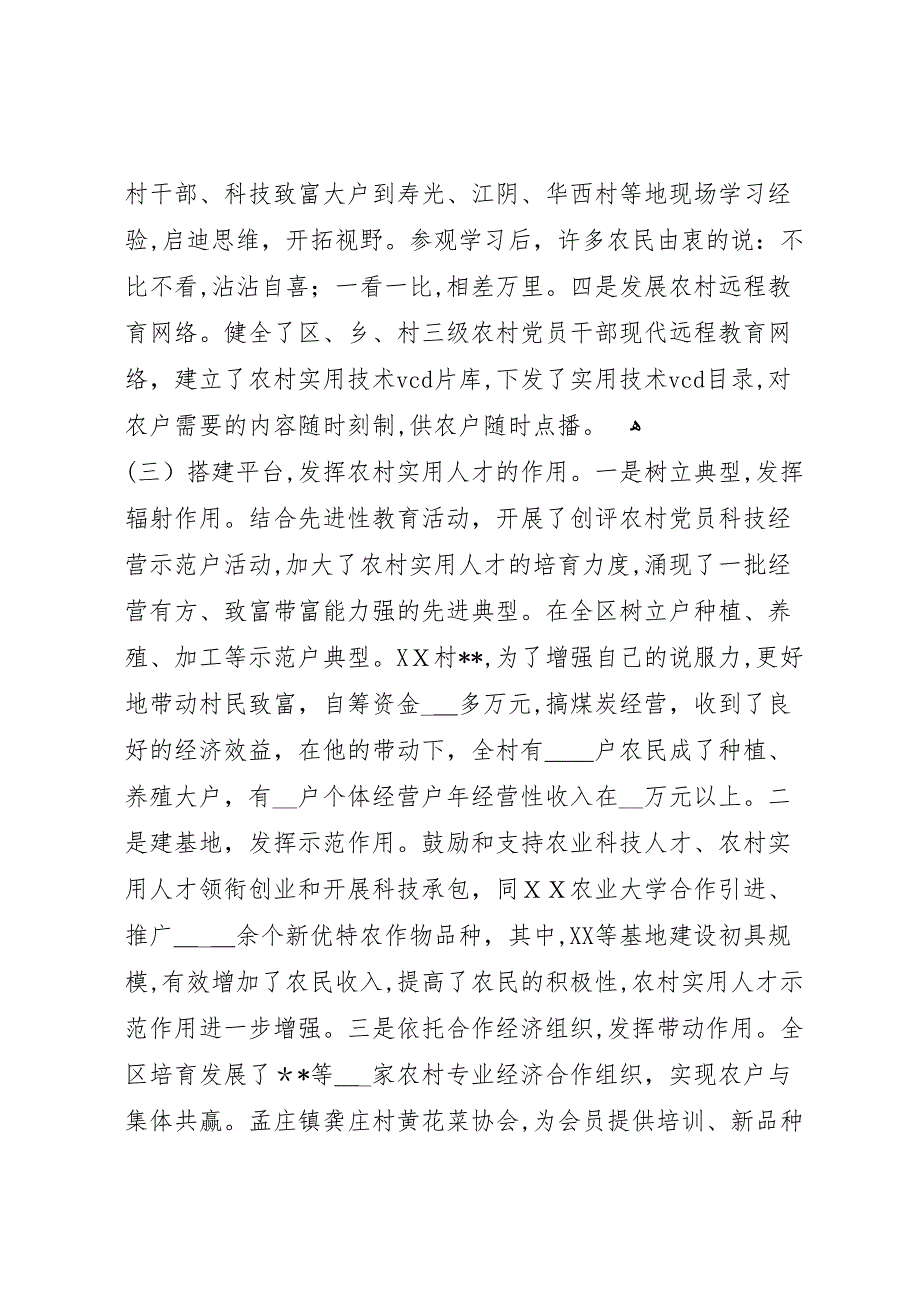 村干部、科技致富大户到寿光、江阴、华西村等地现场学习经
验,启迪思维，开拓视野。参观学习后，许多农民由衷的说：不
比不看,沾沾自喜；一看一比,相差万里。四是发展农村远程教
育网络。健全了区、乡、村三级农村党员干部现代远程教育网
络，建立了农村实用技术vcd片库,下发了实用技术vcd目录,对
农户需要的内容随时刻制,供农户随时点播。 ﻫ
(三）搭建平台,发挥农村实用人才的作用。一是树立典型,发挥
辐射作用。结合先进性教育活动，开展了创评农村党员科技经
营示范户活动,加大了农村实用人才的培育力度,涌现了一批经
营有方、致富带富能力强的先进典型。在全区树立户种植、养
殖、加工等示范户典型。XＸ村**,为了增强自己的说服力,更好
地带动村民致富，自筹资金___多万元,搞煤炭经营，收到了良
好的经济效益，在他的带动下，全村有____户农民成了种植、
养殖大户，有__户个体经营户年经营性收入在__万元以上。二
是建基地，发挥示范作用。鼓励和支持农业科技人才、农村实
用人才领衔创业和开展科技承包，同ＸＸ农业大学合作引进、
推广_____余个新优特农作物品种，其中,XX等基地建设初具规
模,有效增加了农民收入,提高了农民的积极性,农村实用人才示
范作用进一步增强。三是依托合作经济组织,发挥带动作用。全
区培育发展了＊*等___家农村专业经济合作组织，实现农户与
集体共赢。孟庄镇龚庄村黄花菜协会,为会员提供培训、新品种